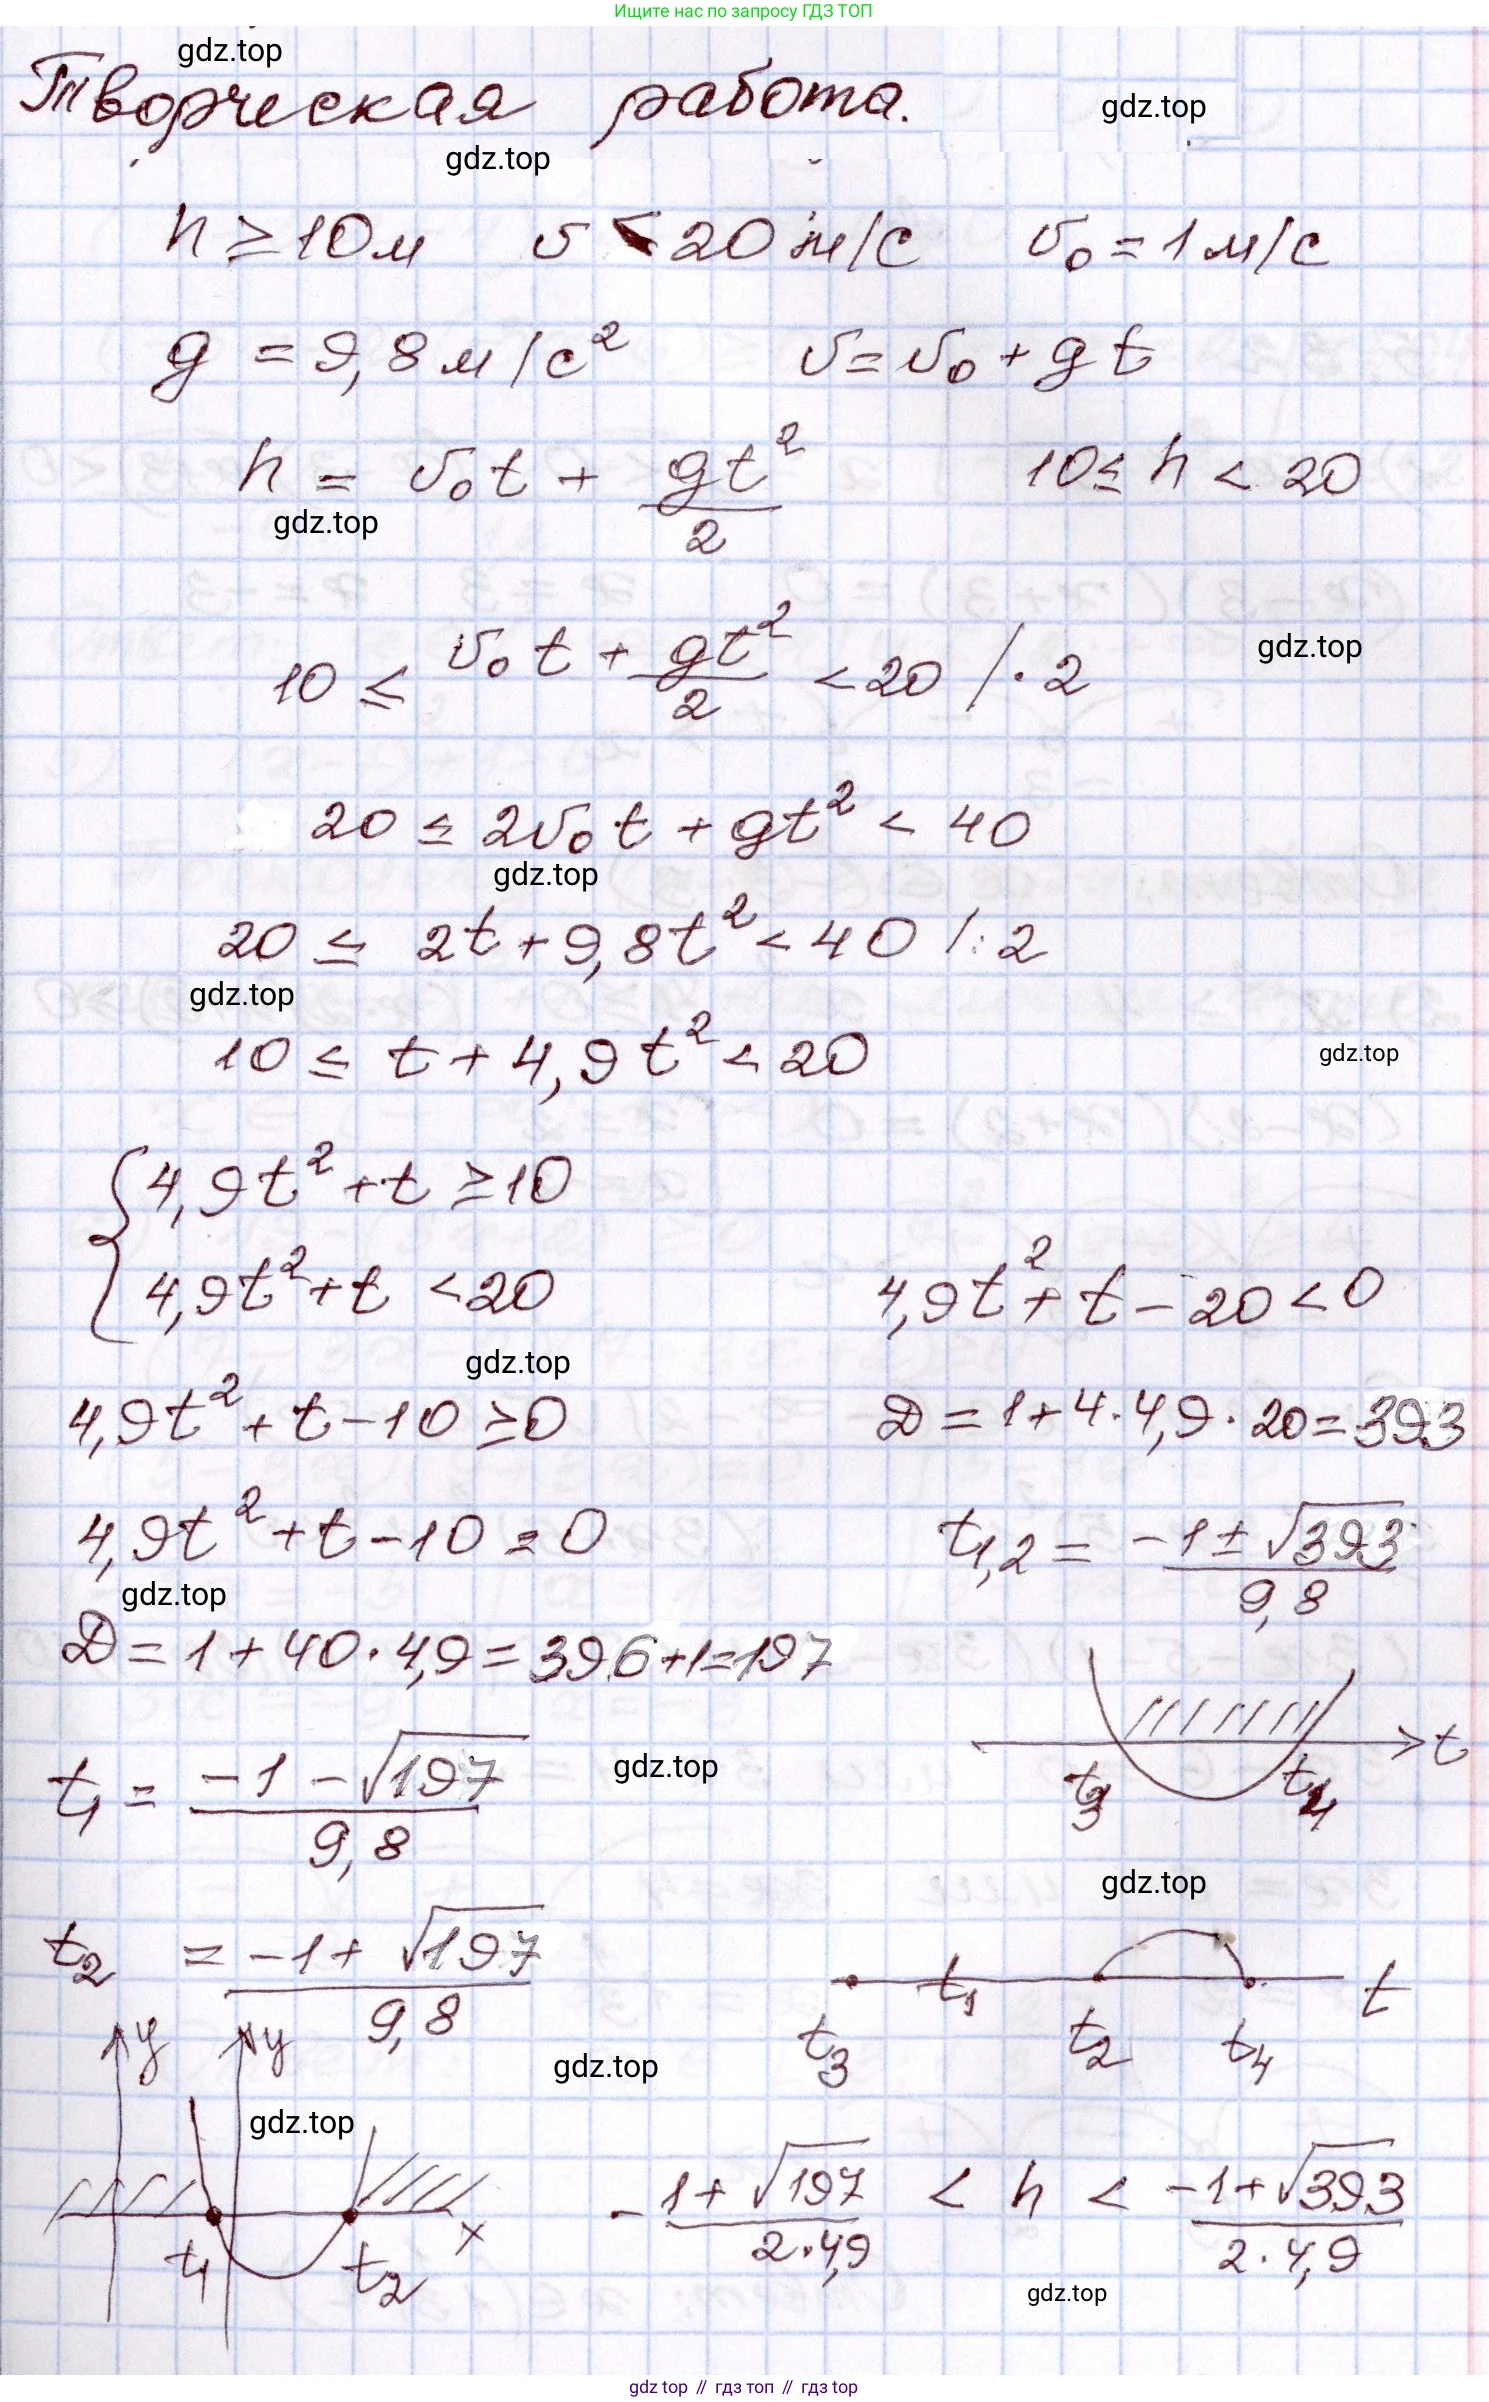 Ищите нас по запросу ГДЗ ТОП
gdz.top
Творческая работа.
gdz.top
gdz.top
h ≥ 10м   v < 20 м/с   v₀ = 1 м/с
g = 9,8 м/с²   v = v₀ + gt
h = v₀t + gt²/2   10 ≤ h < 20
gdz.top
10 ≤ v₀t + gt²/2 < 20 /·2
gdz.top
20 ≤ 2v₀t + gt² < 40
gdz.top
20 ≤ 2t + 9,8t² < 40 /:2
gdz.top
10 ≤ t + 4,9t² < 20
gdz.top
{ 4,9t² + t ≥ 10
4,9t² + t < 20   4,9t² + t - 20 < 0
gdz.top
4,9t² + t - 10 ≥ 0   D = 1 + 4·4,9·20 = 393
4,9t² + t - 10 = 0   t₁,₂ = (-1 ± √393)/9,8
gdz.top
D = 1 + 40·4,9 = 396+1=197
t₃ t₄ t
t₁ = (-1 - √197)/9,8
gdz.top
gdz.top
t₂ = (-1 + √197)/9,8
t₃ t₁ t₂ t₄ t
y y
gdz.top
gdz.top
t₁ t₂ x
-(1 + √197)/(2·4,9) < h < (-1 + √393)/(2·4,9)
gdz.top
gdz top // гдз топ // гдз top